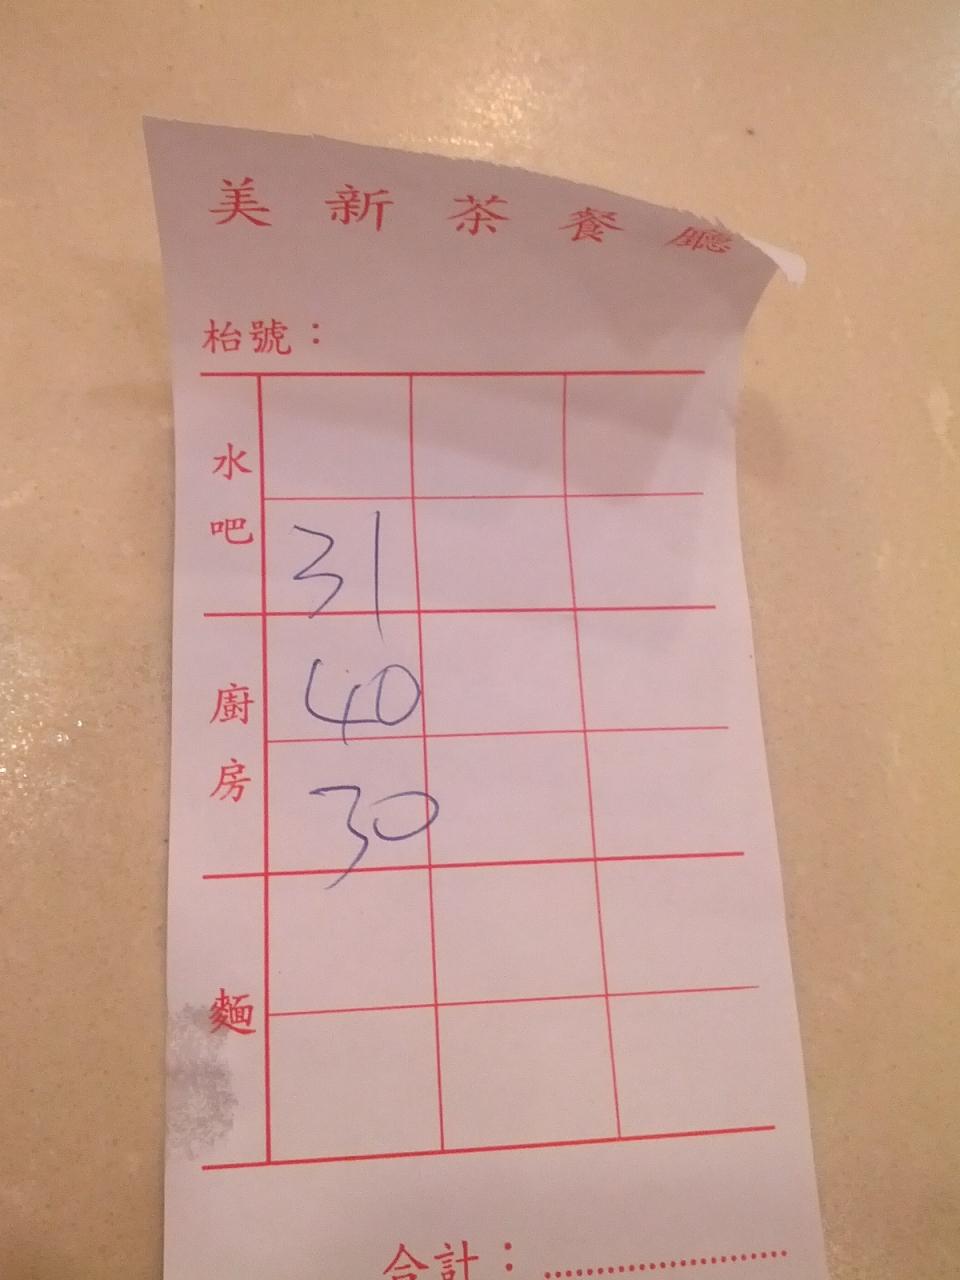 美新茶餐廳
枱號：
水吧
31
廚房
40
30
麵
合計：